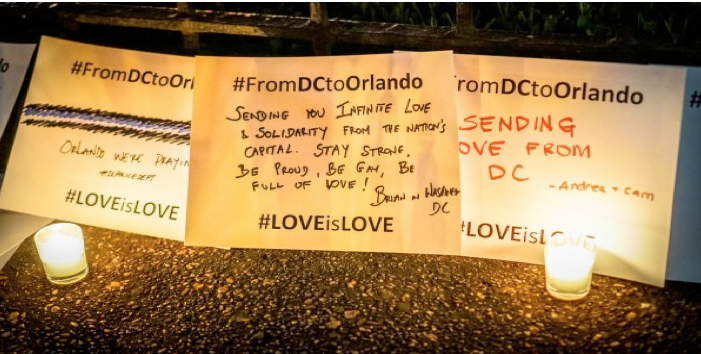 #FromDCtoOrl
ORLANDO WE'RE PRAYIN
#LOVEisLOVE
#FromDCtoOrlando
SENDING YOU INFINITE LOVE
& SOLIDARITY FROM THE NATION'S
CAPITAL. STAY STRONG.
BE PROUD, BE GAY, BE
FULL OF LOVE!
BRIAN IN
DC
#LOVEisLOVE
romDCtoOrlando
SENDING
OVE FROM
DC
-Andrea + Cam
#LOVEisLOVE
#